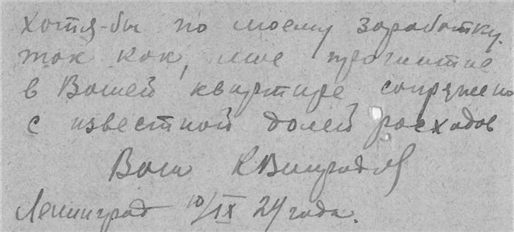 хотя-бы по моему заработку.
так как, мне прожитие
в Вашей квартире сопряжено
с известной долей расходов
Ваш К Виноградов
Ленинград 10/IX 24 года.